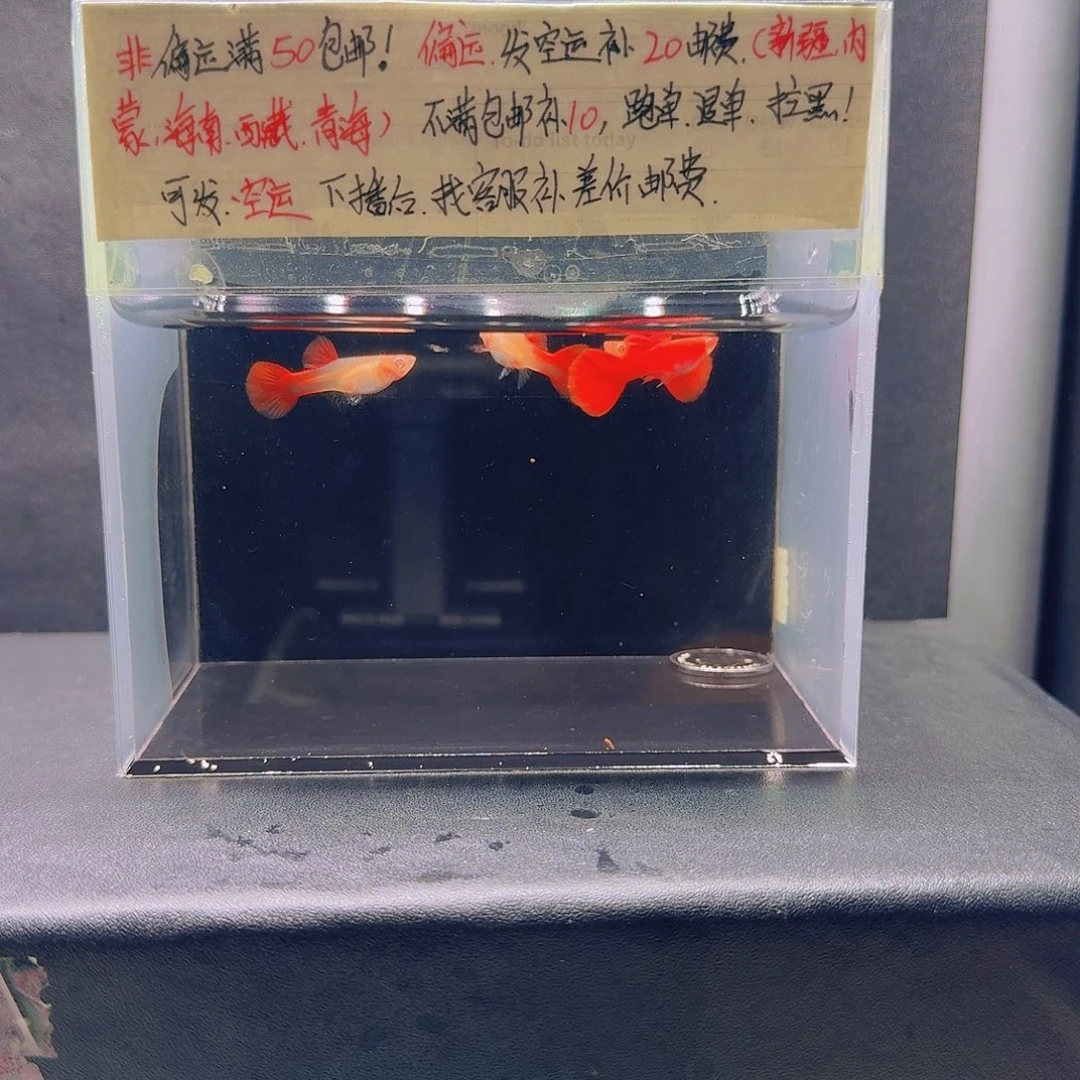 非偏远满50包邮！ 偏远.发空运补20邮费.(新疆.内
蒙.海南.西藏.青海) 不满包邮补10,跑单.退单.拉黑！
To do list today
可发.空运 下播后.找客服补差价邮费.